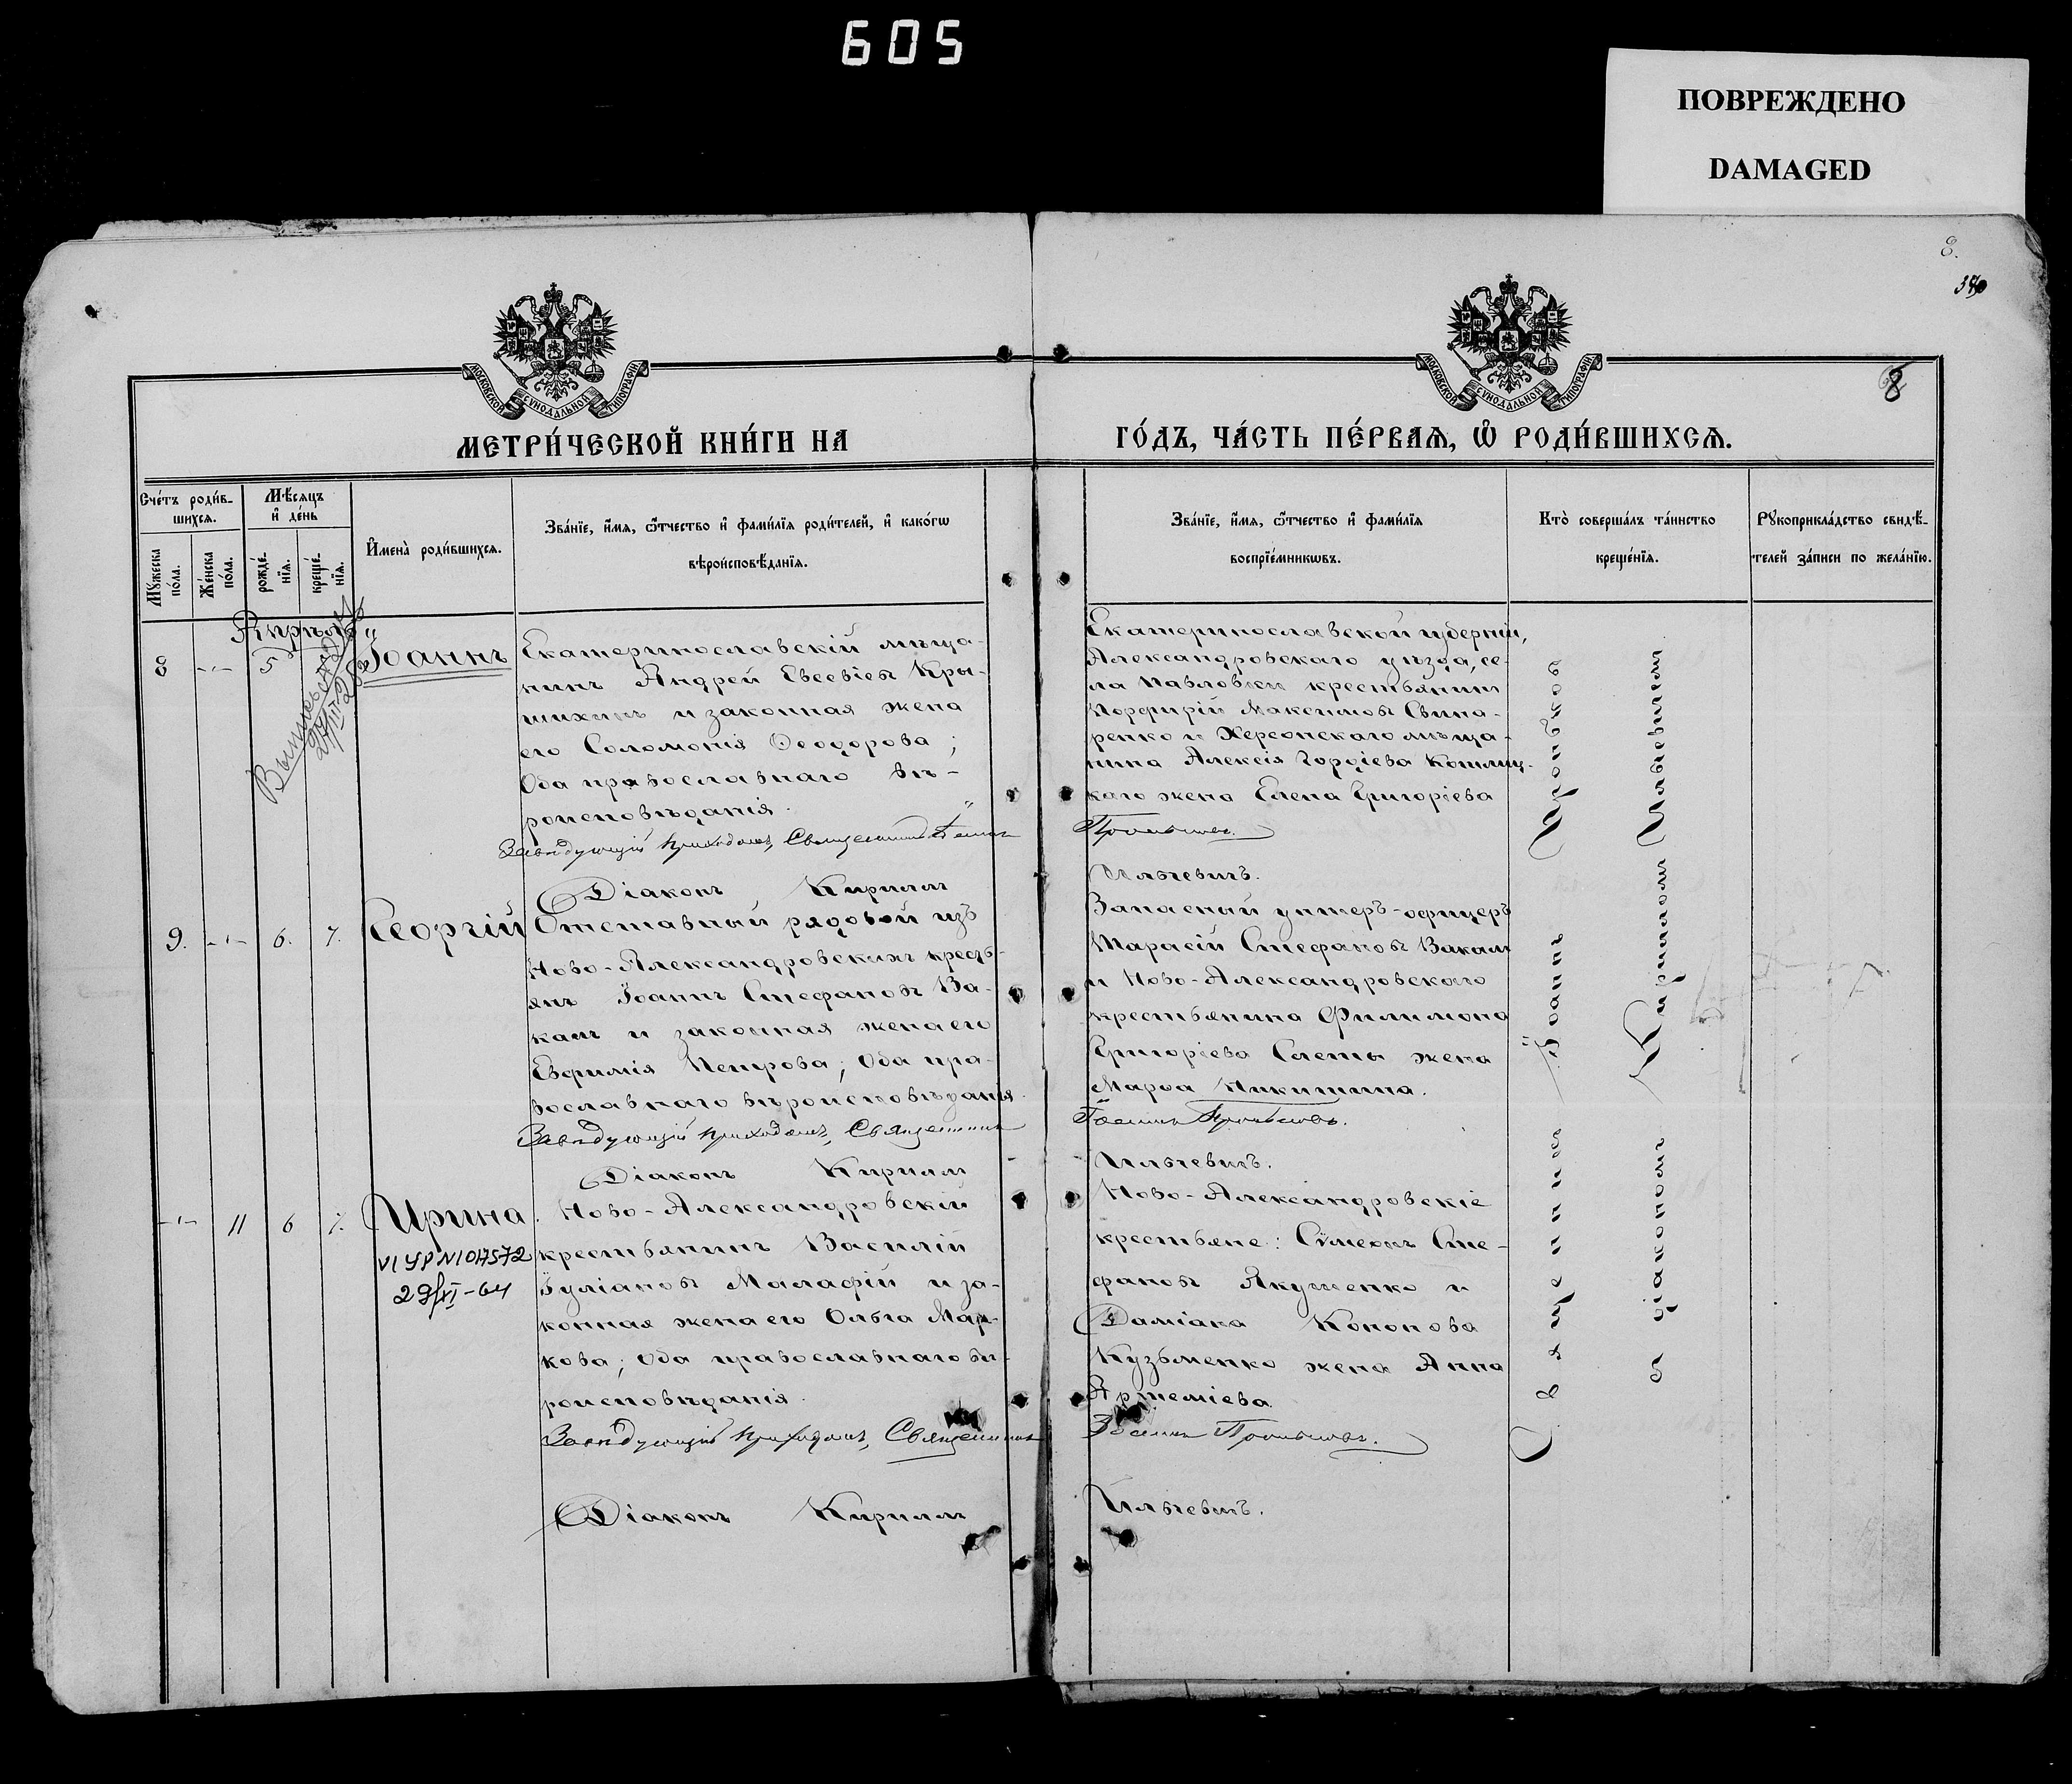 605
ПОВРЕЖДЕНО
DAMAGED
8.
МОСКОВСКОЙ СѴНОДАЛЬНОЙ ТИПОГРАФІИ
МОСКОВСКОЙ СѴНОДАЛЬНОЙ ТИПОГРАФІИ
8
МЕТРИ́ЧЕСКОЙ КНИ́ГИ НА
ГО́ДЪ, ЧА́СТЬ ПЕ́РВАѦ, Ѡ҆ РОДИ́ВШИХСѦ.
Счéтъ роди́в-
шихсѧ.
Мѣ́сѧцъ
и҆ де́нь
Мꙋжеска
по́ла.
Же́нска
по́ла.
рожде́-
нїѧ.
креще́-
нїѧ.
И҆мена̀ роди́вшихсѧ.
Зва́нїе, и҆́мѧ, ѻ҆́тчество и҆ фами́лїѧ роди́телей, и҆ како́гѡ
вѣроисповѣ́данїѧ.
Зва́нїе, и҆́мѧ, ѻ҆́тчество и҆ фами́лїѧ
воспрїе́мникѡвъ.
Кто̀ соверша́лъ та́инство
креще́нїѧ.
Рꙋкоприкла́дство свидѣ́-
телей за́писи по жела́нїю.
8
5
Іоаннъ
Екатеринославскій мѣща-
нинъ Андрей Евсевіевъ Кры-
шихинъ и законная жена
его Соломонія Ѳеодорова;
Оба православнаго вѣ-
роисповѣданія.
Завѣдующій приходомъ, Священникъ Іоаннъ
Діаконъ Кирилл
Екатеринославской губерніи,
Александровскаго уѣзда, се-
ла Павловки крестьянинъ
Порфирій Максимовъ Свина-
ренко и Херсонскаго мѣща-
нина Алексія Гордіева
жена Елена Григоріева
Ильчевичъ.
9.
6.
7.
Георгій
Отставный рядовой изъ
Ново-Александровскихъ кресть-
янъ Іоаннъ Стефановъ Ва-
калъ и законная жена его
Евфимія Петрова; Оба пра-
вославнаго вѣроисповѣданія.
Завѣдующій приходомъ, Священникъ
Діаконъ Кирилл
Запасный унтеръ-офицеръ
Тарасій Стефановъ Вакалъ
и Ново-Александровскаго
крестьянина Филимона
Григоріева жена
Марѳа Никитина.
Іоаннъ
Ильчевичъ.
11
6
7.
Ирина.
29/XI-64
Ново-Александровскій
крестьянинъ Василій
Іуліановъ Малафій и за-
конная жена его Ольга Мар-
кова; Оба православнаго вѣ-
роисповѣданія.
Завѣдующій приходомъ, Священникъ
Діаконъ Кирилл
Ново-Александровскіе
крестьяне: Сѵмеонъ Сте-
фановъ Якушенко и
Даміана Кононова
Кузьменко жена Анна
Артеміева.
Іоаннъ
Ильчевичъ.
Священникъ Іоаннъ
съ діакономъ Кирилломъ Ильчевичемъ